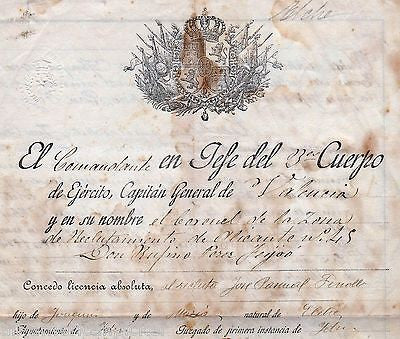 Elche
El Comandante en Jefe del 3er Cuerpo
de Ejército, Capitán General de Valencia
y en su nombre el Coronel de la Zona
de Reclutamiento de Alicante nº 45
Don Rufino Perez Feijoo
Concedo licencia absoluta, al soldado José Pascual
hijo de Joaquin y de Maria natural de Elche
Ayuntamiento de Juzgado de primera instancia de